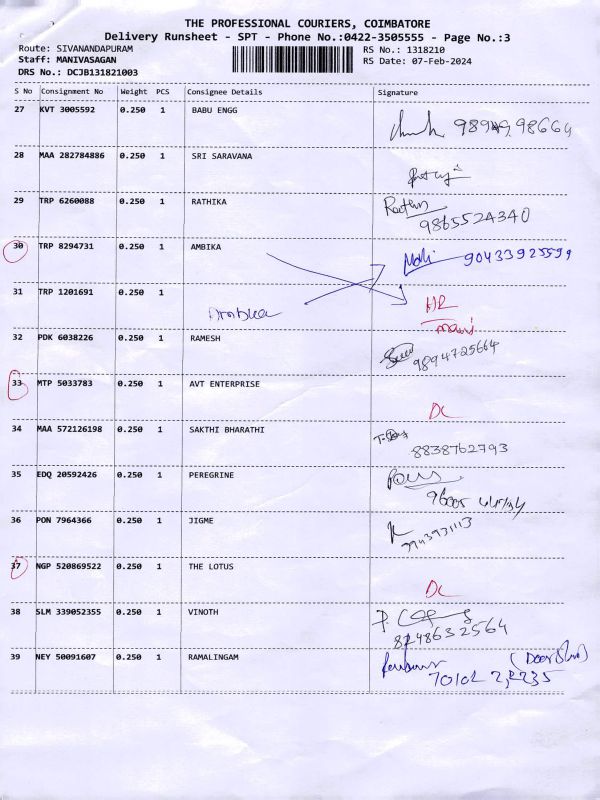 THE PROFESSIONAL COURIERS, COIMBATORE
Delivery Runsheet - SPT - Phone No.:0422-3505555 - Page No.:3
Route: SIVANANDAPURAM RS No.: 1318210
Staff: MANIVASAGAN RS Date: 07-Feb-2024
DRS No.: DCJB131821003
S No Consignment No Weight PCS Consignee Details Signature
27 KVT 3005592 0.250 1 BABU ENGG
28 MAA 282784886 0.250 1 SRI SARAVANA
29 TRP 6260088 0.250 1 RATHIKA
9865524340
30 TRP 8294731 0.250 1 AMBIKA 90433925599
31 TRP 1201691 0.250 1
32 PDK 6038226 0.250 1 RAMESH
9894725664
33 MTP 5033783 0.250 1 AVT ENTERPRISE
DL
34 MAA 572126198 0.250 1 SAKTHI BHARATHI
8838762793
35 EDQ 20592426 0.250 1 PEREGRINE
36 PON 7964366 0.250 1 JIGME
37 NGP 520869522 0.250 1 THE LOTUS
DL
38 SLM 339052355 0.250 1 VINOTH
8248632564
39 NEY 50091607 0.250 1 RAMALINGAM